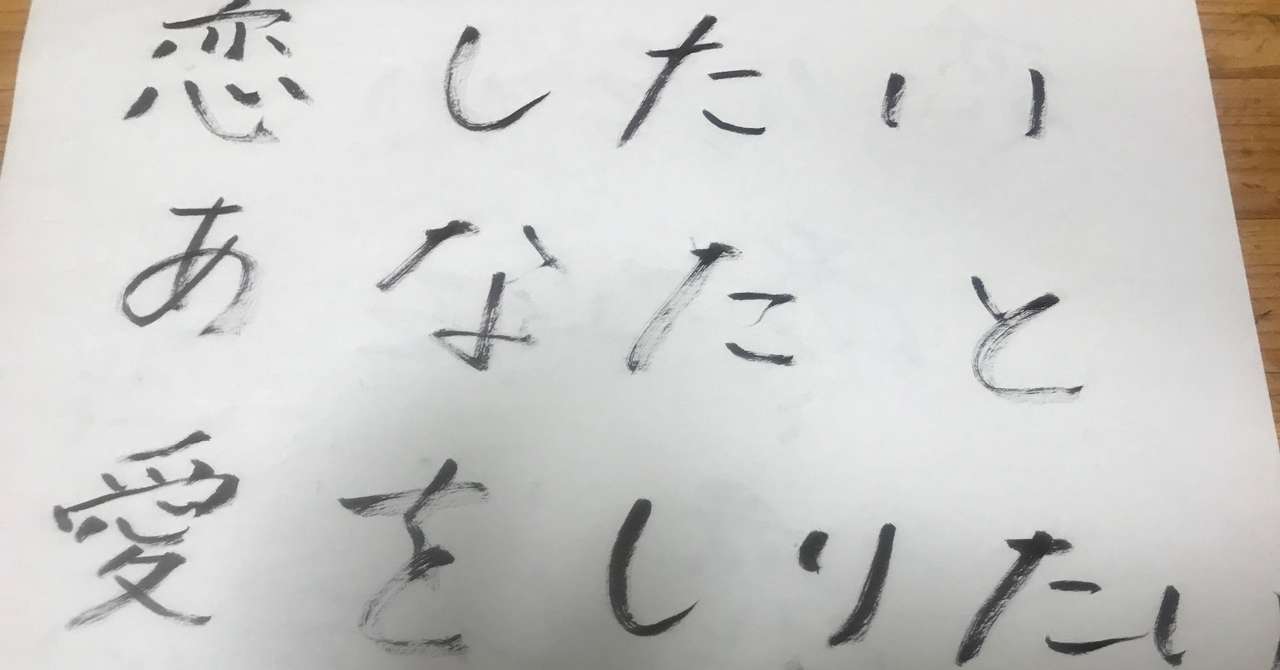 恋したい
あなたと
愛をしりたい